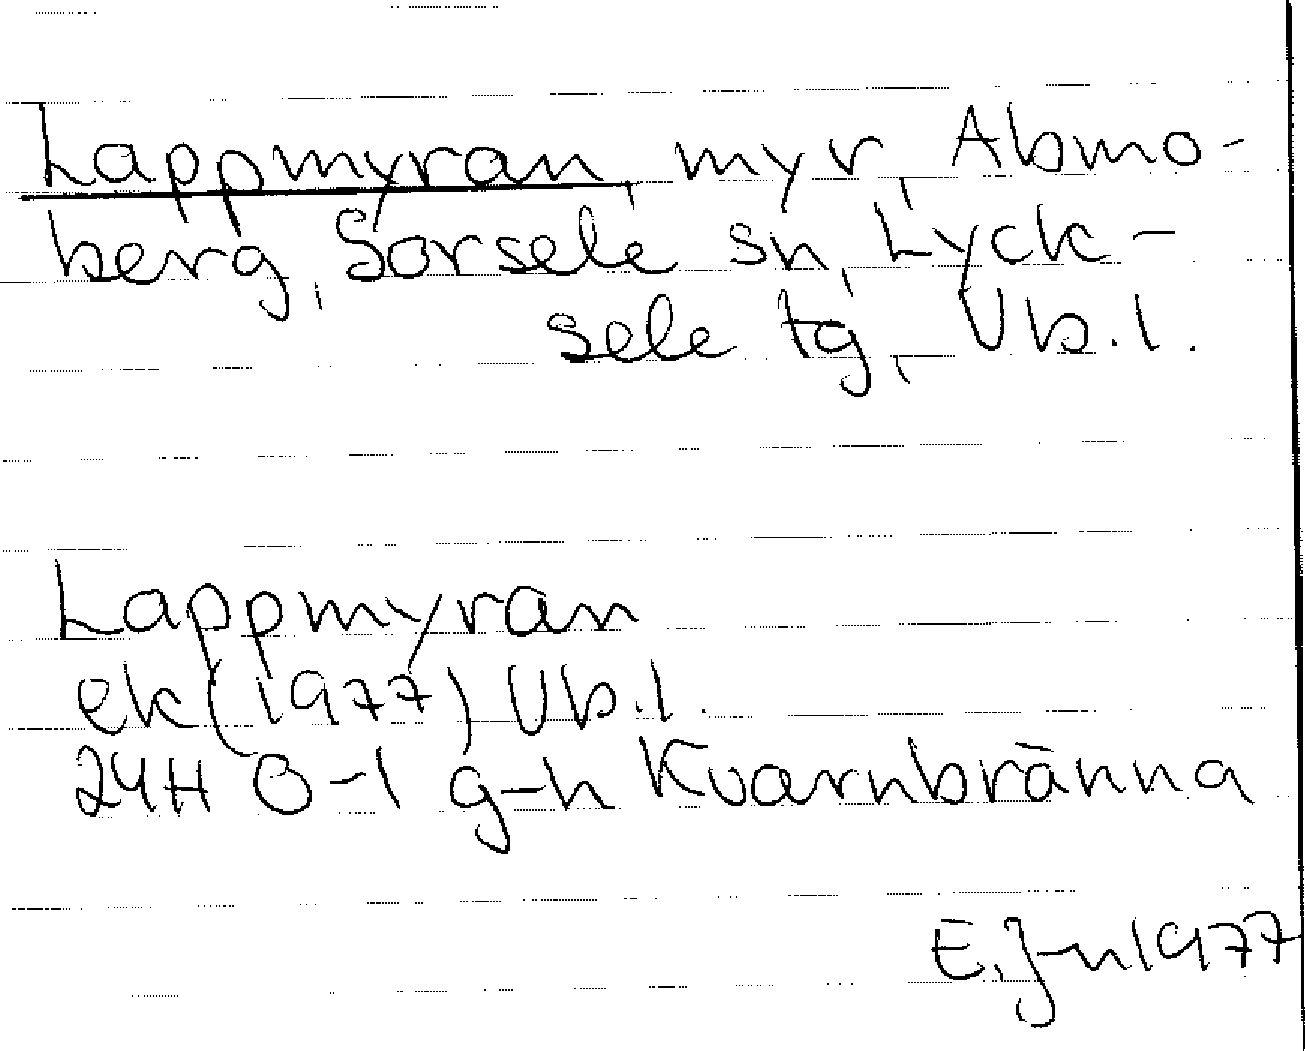 Lappmyran, myr, Abmo-
berg, Sorsele sn, Lyck-
sele tg, Vb.l.
Lappmyran
ek (1977) Vb.l.
24H 0-1 g-h Kvarnbränna
E.J-n 1977